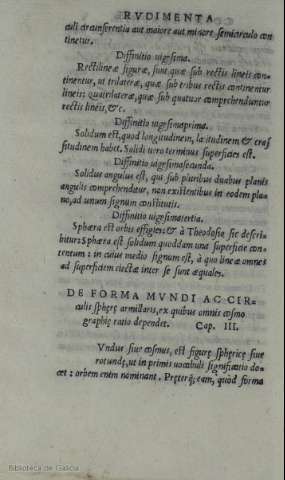 RVDIMENTA
culi circunferentia aut maiore aut minore semicirculo con
tinetur.
Diffinitio uigesima.
Rectilineæ figuræ, sunt quæ sub rectis lineis con-
tinentur, ut trilateræ, quæ sub tribus rectis continentur
lineis: quatrilateræ, quæ sub quatuor comprehenduntur
rectis lineis, &c.
Diffinitio uigesimaprima.
Solidum est, quod longitudinem, latitudinem & cras
situdinem habet. Solidi uero terminus superficies est.
Diffinitio uigesimasecunda.
Solidus angulus est, qui sub pluribus duabus planis
angulis comprehenditur, non existentibus in eodem pla-
no, ad unum signum constitutis.
Diffinitio uigesimatertia.
Sphæra est orbis effigies: & à Theodosio sic descri-
bitur: Sphæra est solidum quoddam una superficie con-
tentum: in cuius medio signum est, à quo lineæ omnes
ad superficiem eiectæ inter se sunt æquales.
DE FORMA MVNDI AC CIR-
culis spheræ armillaris, ex quibus omnis cosmo
graphiæ ratio dependet. Cap. III.
Vndus siue cosmus, est figuræ sphæricæ siue
rotundæ, ut in primis uocabuli significatio do-
cet: orbem enim nominant. Præterq; eam, quòd forma
Biblioteca de Galicia